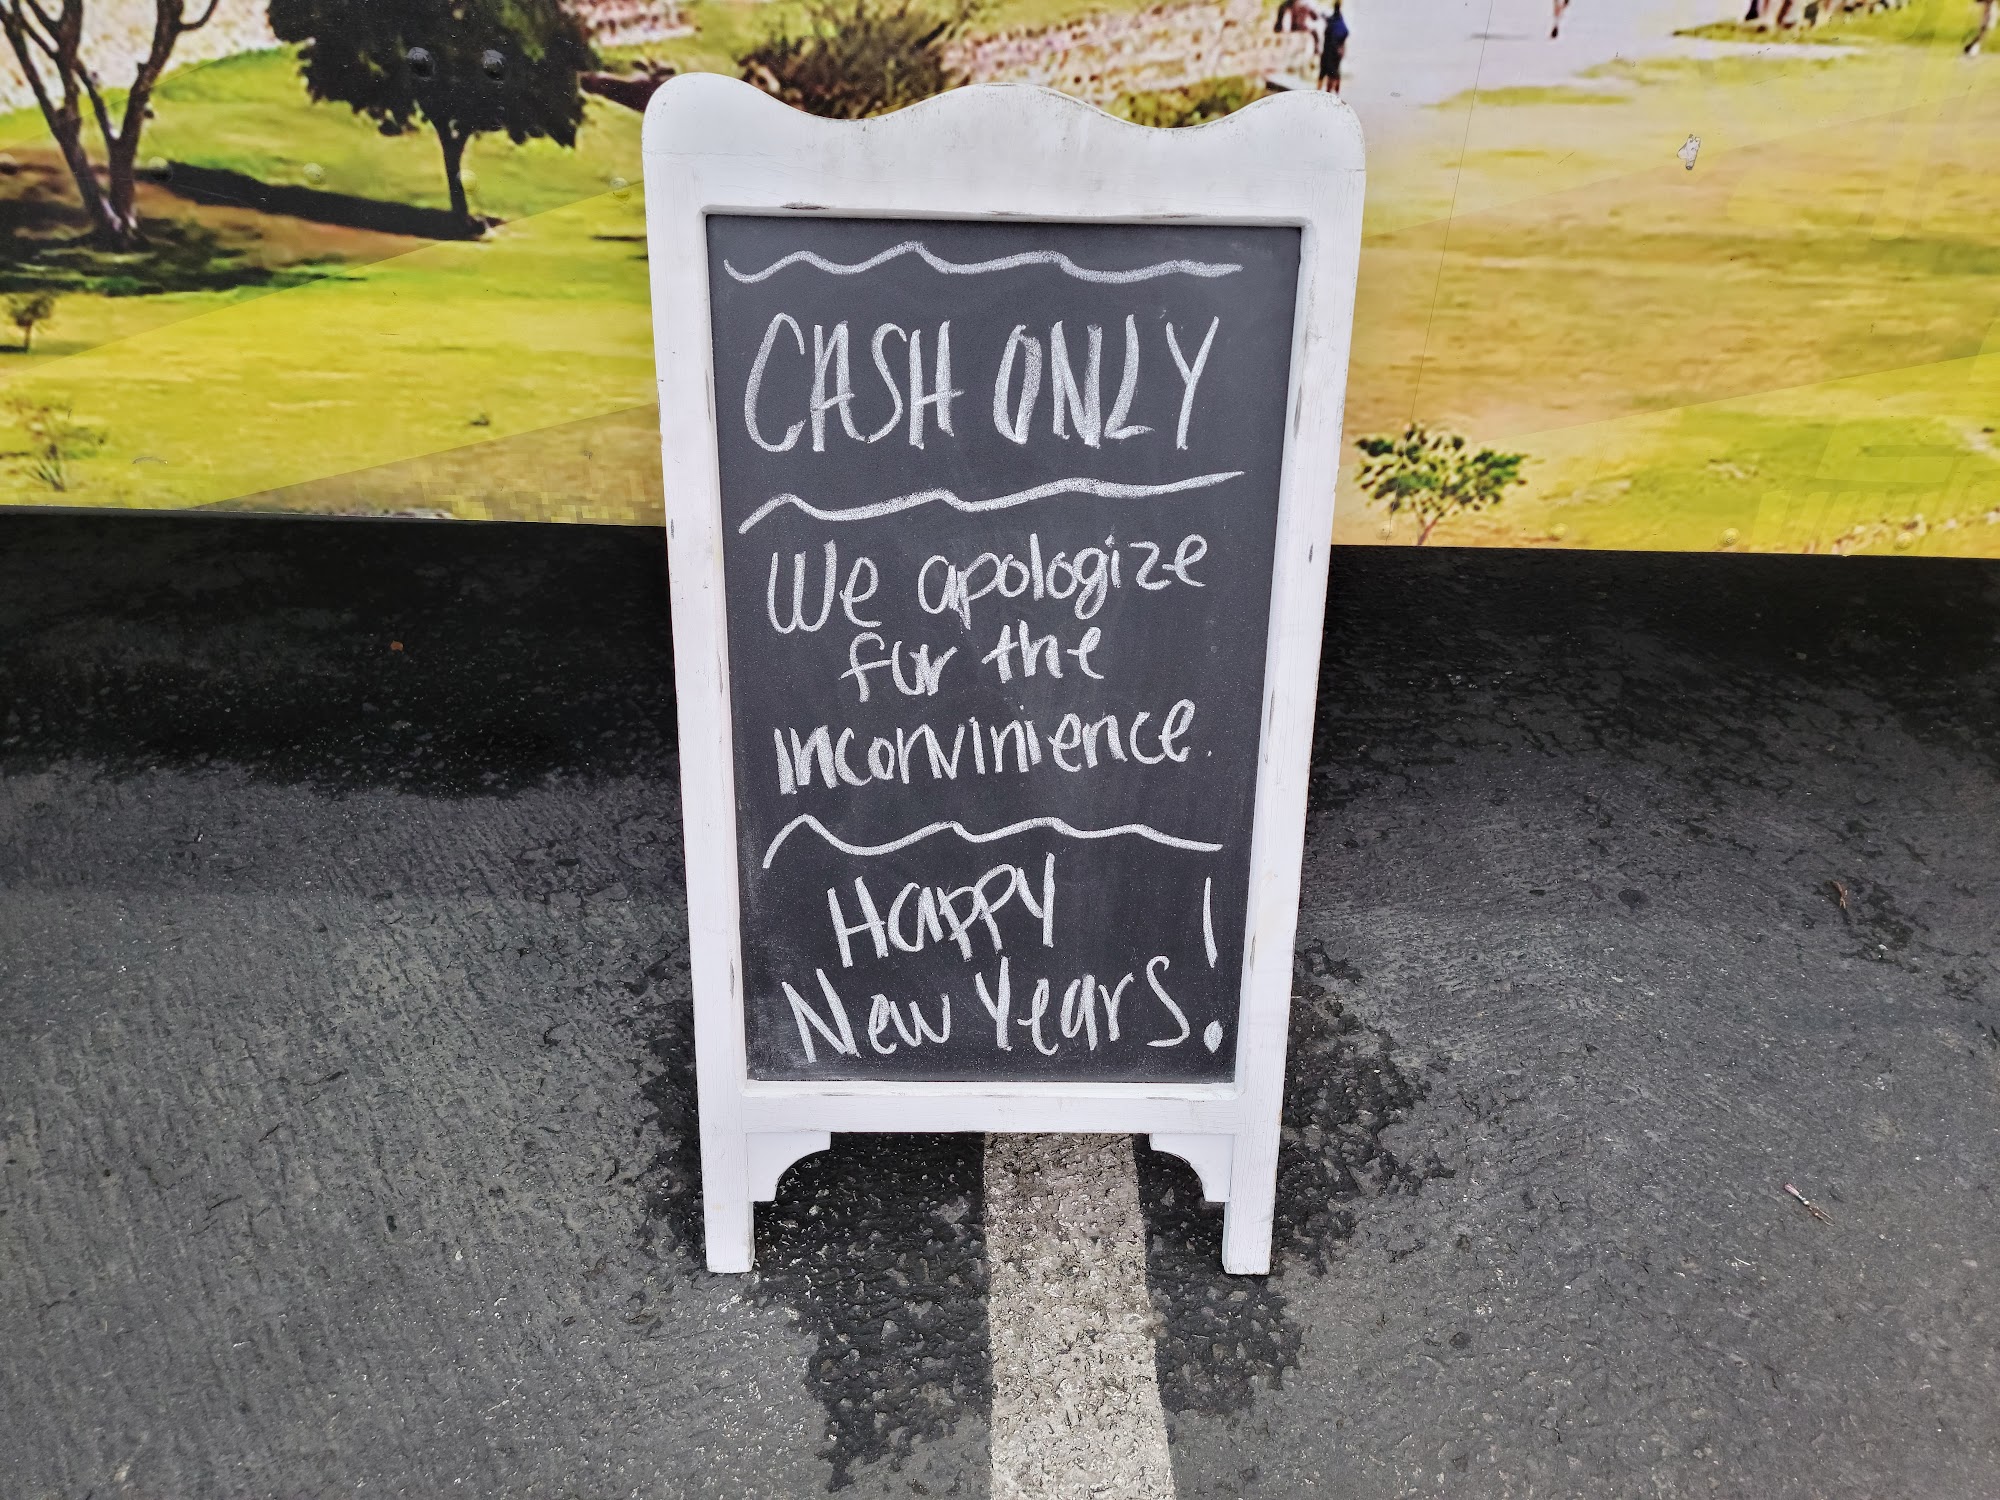 CASH ONLY
We apologize
for the
inconvinience.
Happy
New Years!